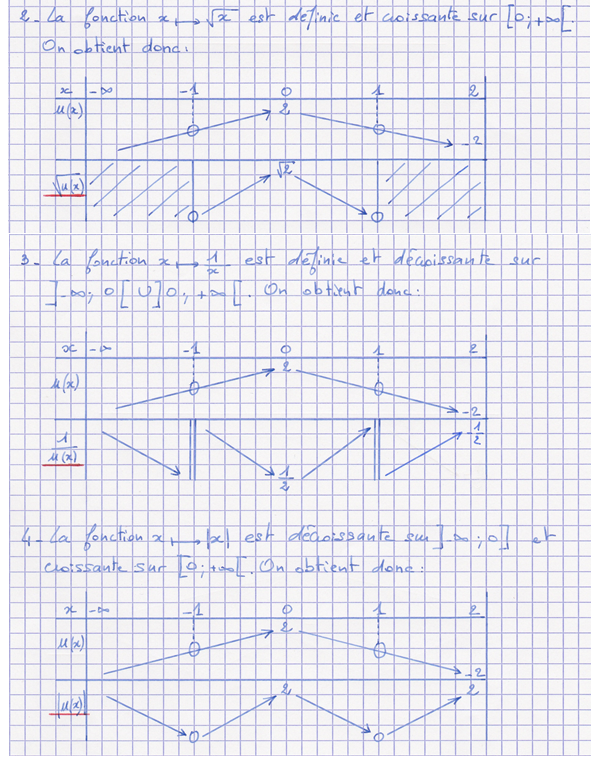 2_ La fonction x ↦ √x est définie et croissante sur [0;+∞[.
On obtient donc:
x -∞ -1 0 1 2
u(x) 0 2 0 -2
√u(x) 0 √2 0
3_ La fonction x ↦ 1/x est définie et décroissante sur
]-∞; 0[ U ]0; +∞[. On obtient donc:
x -∞ -1 0 1 2
u(x) 0 2 0 -2
1/u(x) 1/2 -1/2
4_ La fonction x ↦ |x| est décroissante sur ]-∞; 0] et
croissante sur [0;+∞[. On obtient donc:
x -∞ -1 0 1 2
u(x) 0 2 0 -2
|u(x)| 0 2 0 2